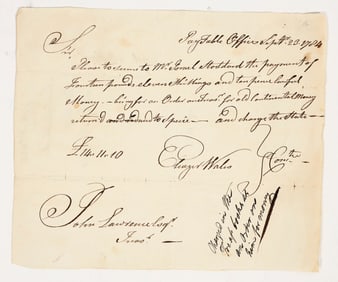 Pay Table Office Sept. 23. 1784
Sir
Please to secure to Mr. Stoddard the payment of
Fourteen pounds eleven Shillings and ten pence lawful
Money — being for an Order on for old Continental Money
return'd and reduced to Specie — and charge the State —
£14..11..10
Eleazer Wales } Comtee
John Lawrence Esqr.
Treasr.
Charged in the